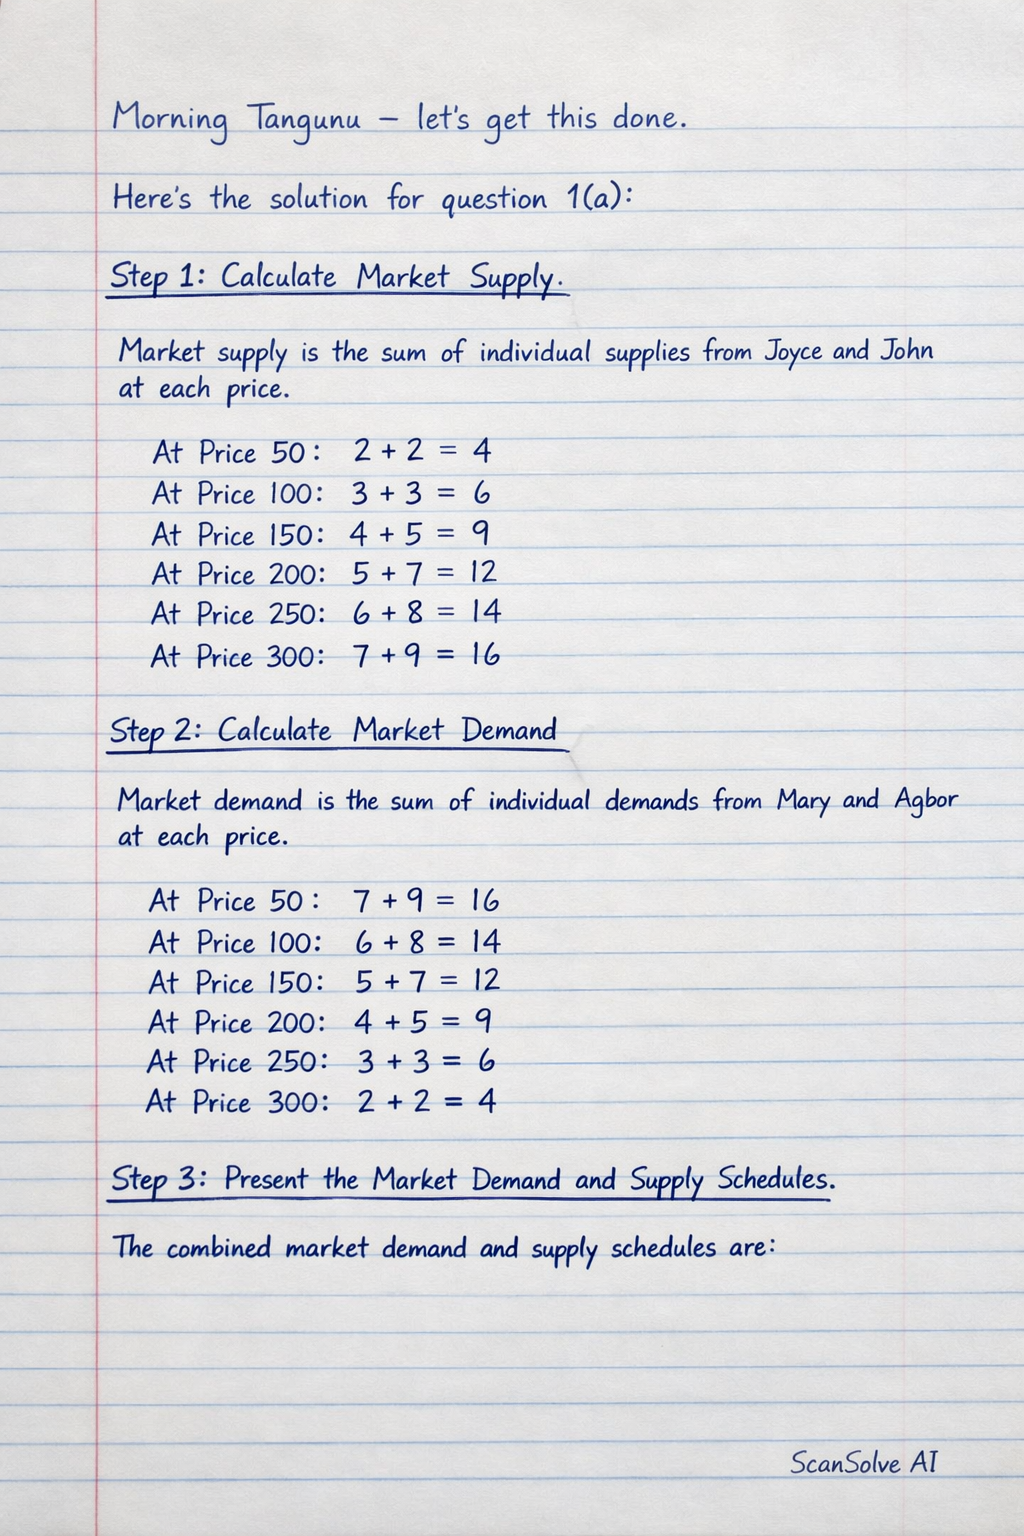 Morning Tangunu – let's get this done.
Here's the solution for question 1(a):
Step 1: Calculate Market Supply.
Market supply is the sum of individual supplies from Joyce and John
at each price.
At Price 50: 2 + 2 = 4
At Price 100: 3 + 3 = 6
At Price 150: 4 + 5 = 9
At Price 200: 5 + 7 = 12
At Price 250: 6 + 8 = 14
At Price 300: 7 + 9 = 16
Step 2: Calculate Market Demand
Market demand is the sum of individual demands from Mary and Agbor
at each price.
At Price 50: 7 + 9 = 16
At Price 100: 6 + 8 = 14
At Price 150: 5 + 7 = 12
At Price 200: 4 + 5 = 9
At Price 250: 3 + 3 = 6
At Price 300: 2 + 2 = 4
Step 3: Present the Market Demand and Supply Schedules.
The combined market demand and supply schedules are:
ScanSolve AI